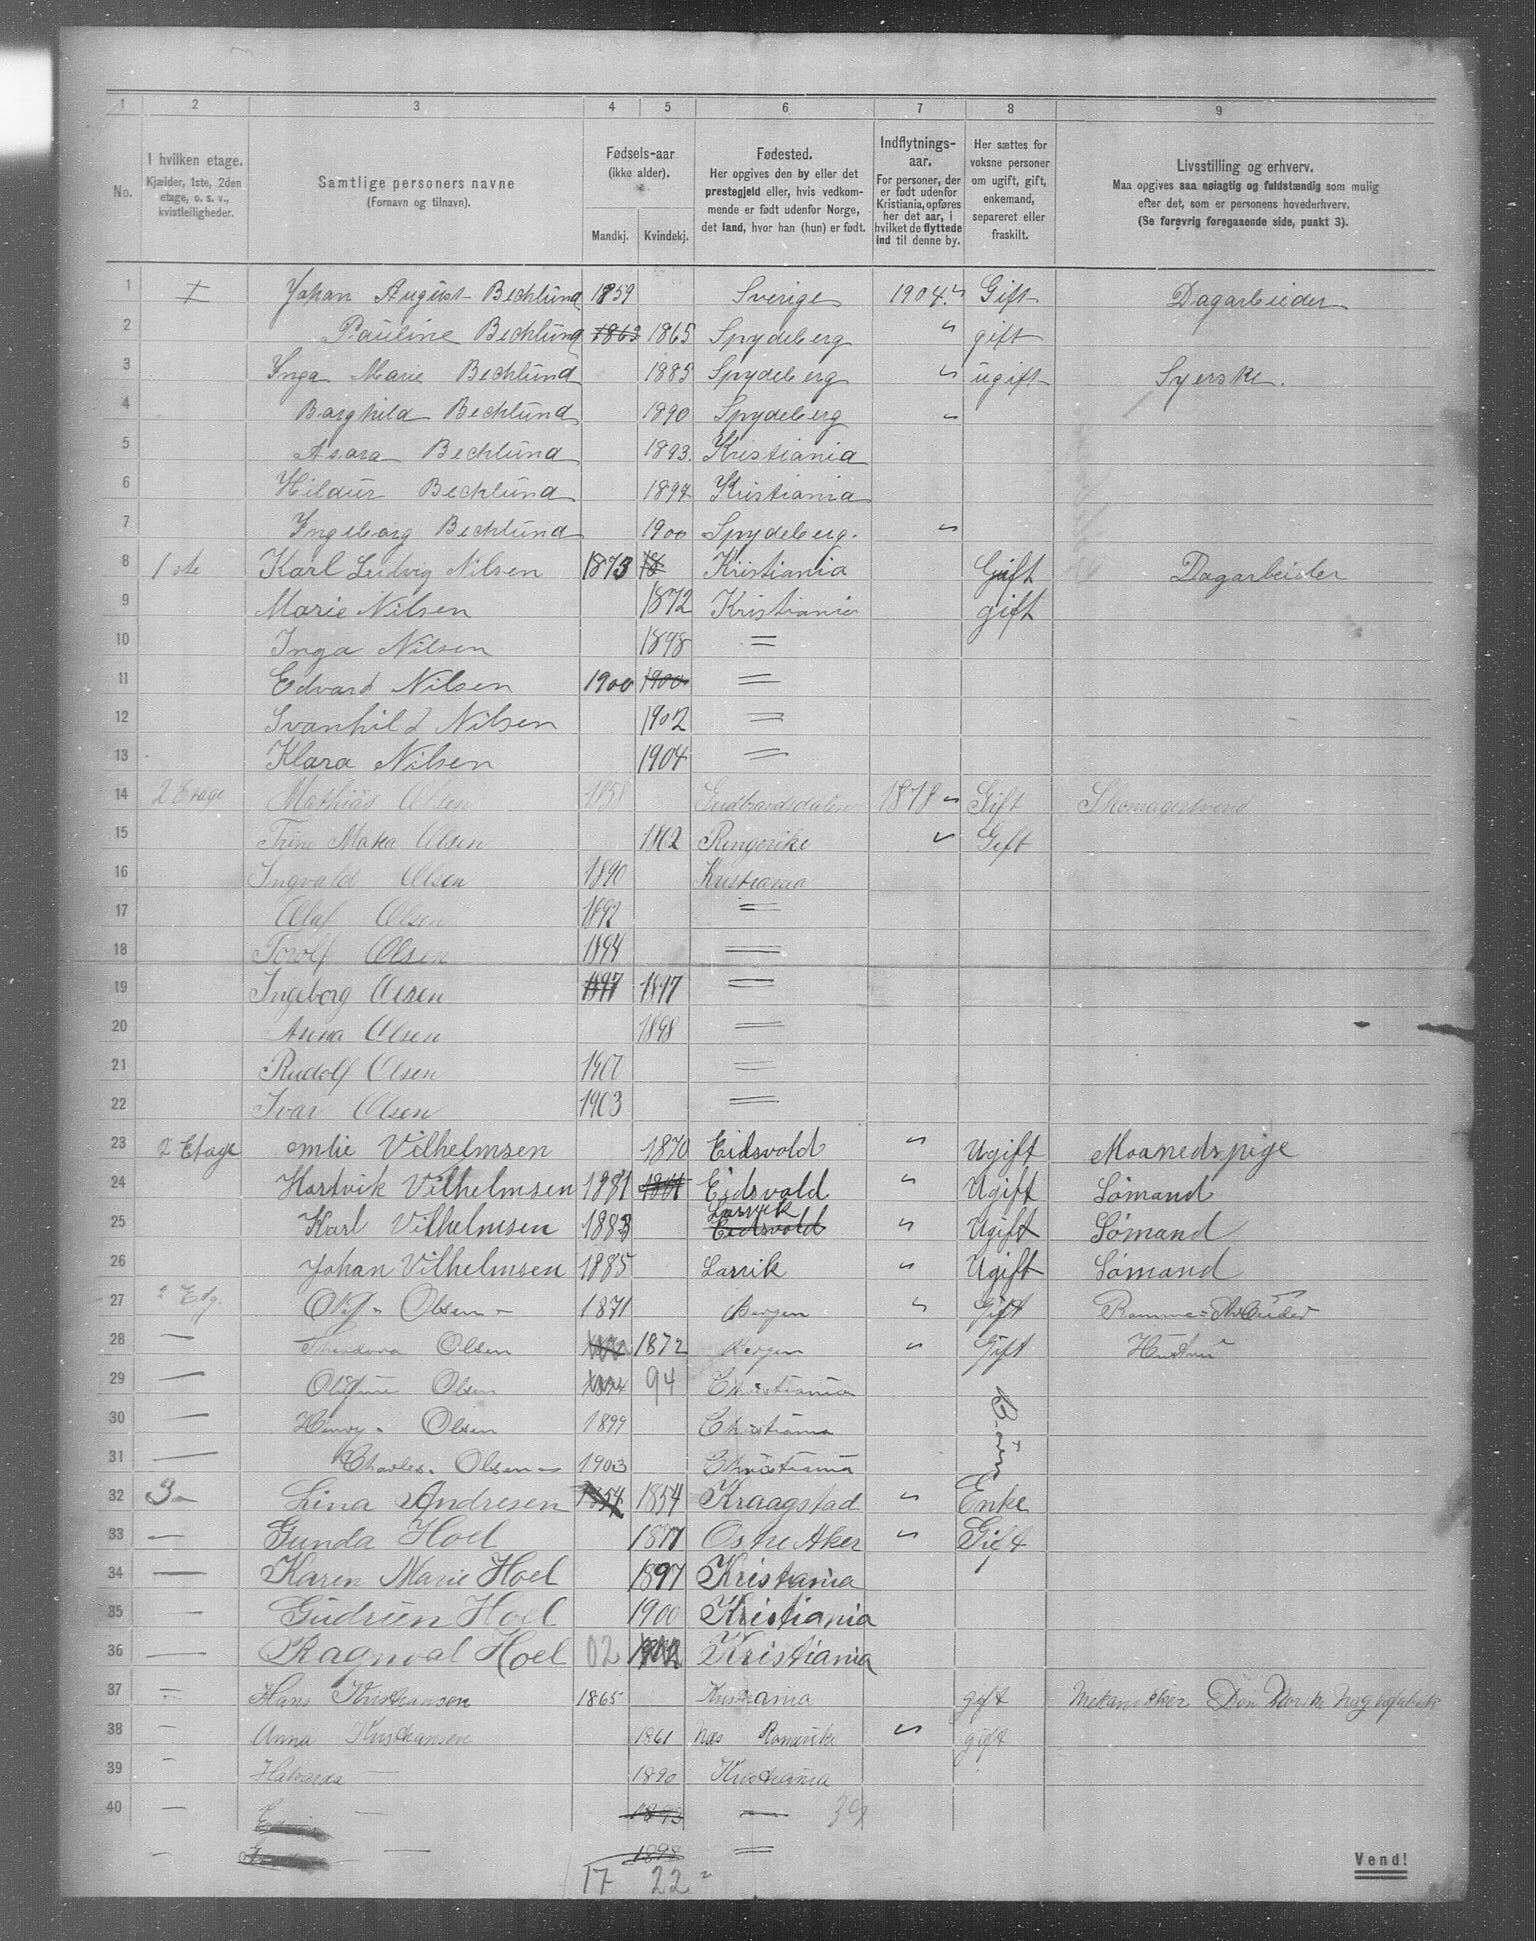 1 2 3 4 5 6 7 8 9
No.
I hvilken etage.
Kjælder, 1ste, 2den
etage, o. s. v.,
kvistleiligheder.
Samtlige personers navne
(Fornavn og tilnavn).
Fødsels-aar
(ikke alder).
Mandkj. Kvindekj.
Fødested.
Her opgives den by eller det
prestegjeld eller, hvis vedkom-
mende er født udenfor Norge,
det land, hvor han (hun) er født.
Indflytnings-
aar.
For personer, der
er født udenfor
Kristiania, opføres
her det aar, i
hvilket de flyttede
ind til denne by.
Her sættes for
voksne personer
om ugift, gift,
enkemand,
separeret eller
fraskilt.
Livsstilling og erhverv.
Maa opgives saa nøiagtig og fuldstændig som mulig
efter det, som er personens hovederhverv.
(Se forøvrig foregaaende side, punkt 3).
1 I Johan August Bechlund 1859 Sverige 1904 Gift Dagarbeider
2 Pauline Bechlund 1863 1865 Spydeberg gift
3 Inga Marie Bechlund 1885 Spydeberg ugift Syerske.
4 Borghild Bechlund 1890 Spydeberg
5 Asora Bechlund 1893. Kristiania
6 Hildur Bechlund 1897 Kristiania
7 Ingeborg Bechlund 1900 Spydeberg.
8 1 ste Karl Ludvig Nilsen 1873 18 Kristiania Gift Dagarbeider
9 Marie Nilsen 1872 Kristiania gift
10 Inga Nilsen 1898 =
11 Edvard Nilsen 1900 1900 =
12 Svanhild Nilsen 1902 =
13 Klara Nilsen 1904 =
14 2 Etage Mathias Olsen 1858 Gudbrandsdalen 1878 Gift Skomagersvend
15 Trine Matea Olsen 1862 Ringerike Gift
16 Ingvald Olsen 1890 Kristiania
17 Olaf Olsen 1892 =
18 Torolf Olsen 1894 =
19 Ingeborg Olsen 1897 1897 =
20 Anna Olsen 1898 =
21 Rudolf Olsen 1907 =
22 Ivar Olsen 1903 =
23 2 Etage emlie Vilhelmsen 1870 Eidsvold Ugift Maanedspige
24 Hartvik Vilhelmsen 1881 1881 Eidsvold Ugift Sømand
25 Karl Vilhelmsen 1883 Larvik Eidsvold Ugift Sømand
26 Johan Vilhelmsen 1885 Larvik Ugift Sømand
27 2 Etg. Olaf Olsen 1871 Bergen Gift Ramme=Arbeider
28 — Theodora Olsen 1872 Bergen Gift Hustru
29 — Olefine Olsen 94 Christiania
30 — Henry Olsen 1899 Christiania
Børn
31 — Charles Olsen 1903 Christiania
32 3 Lina Andresen 1854 1854 Kraagstad Enke
33 — Gunda Hoel 1877 Østre Aker Gift
34 — Karen Marie Hoel 1897 Kristiania
35 — Gudrun Hoel 1900 Kristiania
36 — Ragnval Hoel 02 1902 Kristiania
37 = Hans Kristiansen 1865 Kristiania gift Mekanikker Den Norske Naglefabrik
38 — Anna Kristiansen 1861 Næs Romerike gift
39 — Halvarda — 1890 Kristiania
40 — — 1893 — 39
— — 1898 =
17 22
Vend!